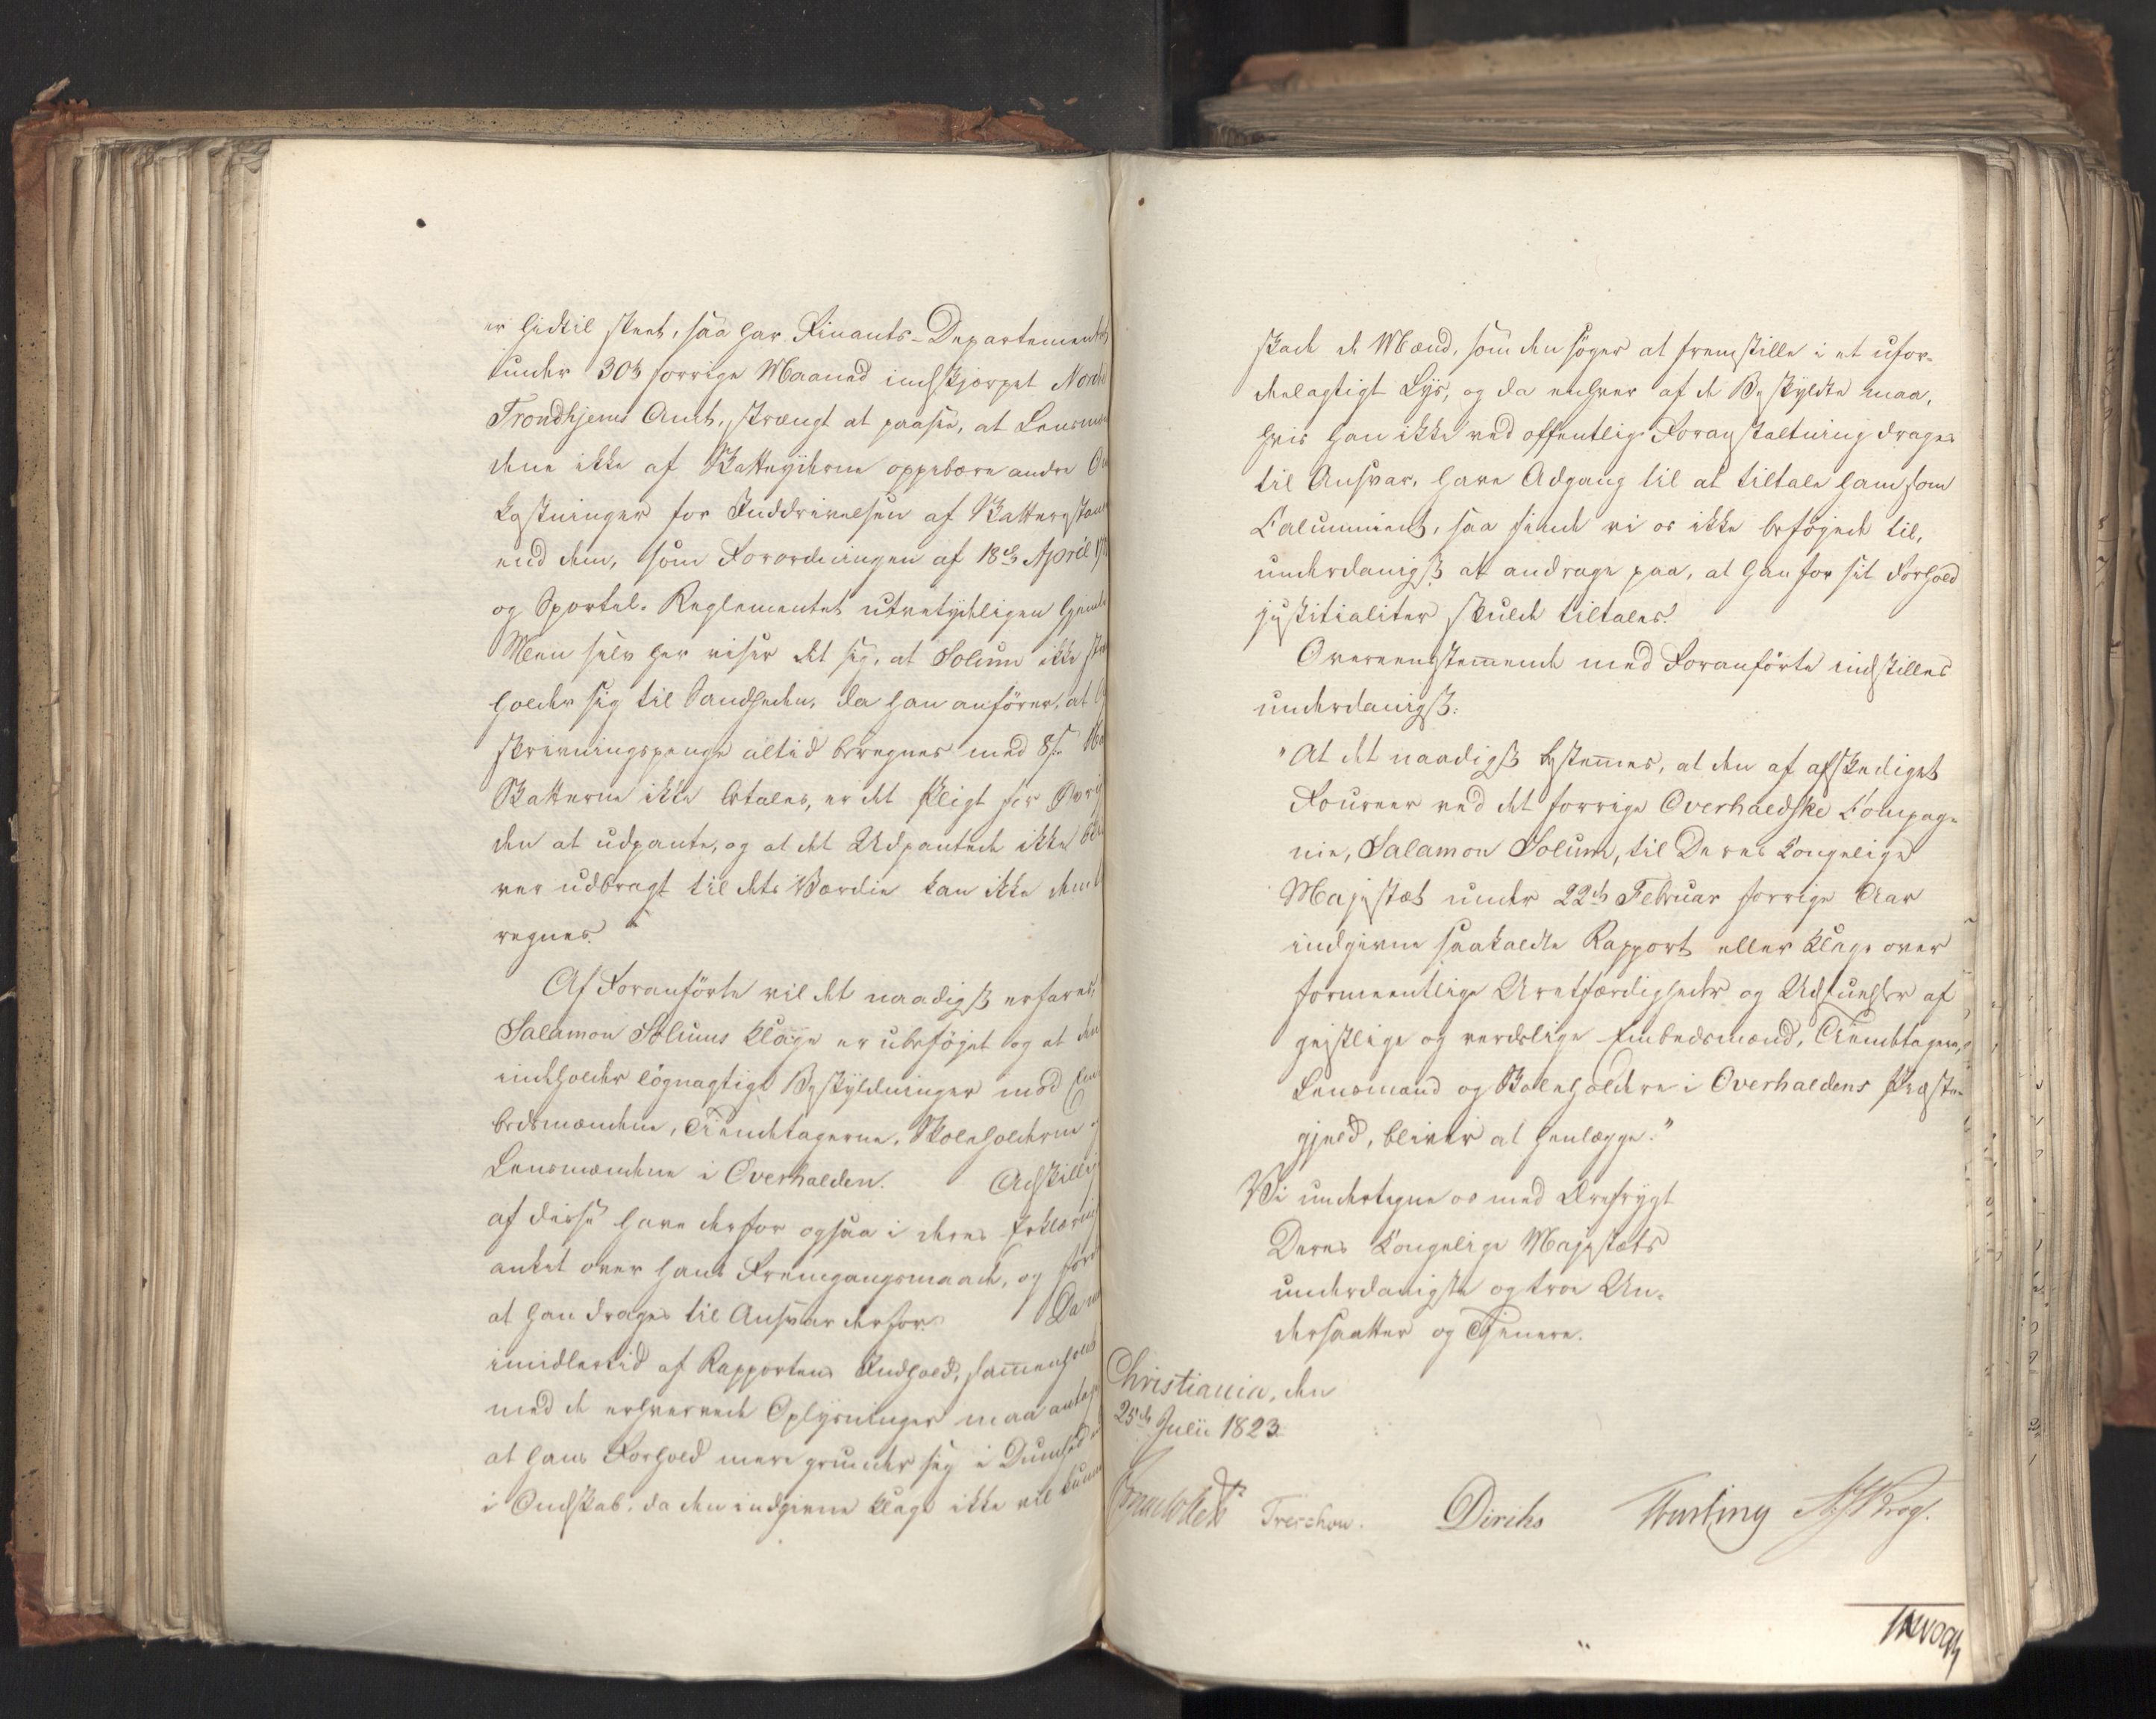 er hidtil skeet, saa har Finants-Departementet
under 30te forrige Maaned indskjærpet Nordre
Trondhjems Amt, strængt at paasee, at Lensmæn-
dene ikke af Skatteyderne oppebære andre Om-
kostninger for Inddrivelsen af Skatterestancer
end dem, som Forordningen af 18de April
og Sportel-Reglementet utvetydeligen hjemle
Men selv her viser det sig, at Solum ikke
holder sig til Sandheden, da han anfører, at
skrivningspenge altid beregnes med 8 s.
Skatterne ikke betales, er det Pligt for
den at udpante, og at det Udpantede ikke
ver udbragt til dets Værdie kan ikke dem
regnes.
Af Foranførte vil det naadigst erfares,
Salamon Solums Klage er ubeføjet og at den
indeholder løgnagtige Beskyldninger mod Em-
bedsmændene, Tiendetagerne, Skoleholderne
Lensmændene i Overhalden. Adskillige
af disse have derfor ogsaa i deres Erklæring
anket over hans Fremgangsmaade, og
at han drages til Ansvar derfor. Da
imidlertid af Rapportens Indhold, sammenholdt
med de erhvervede Oplysninger maa antages
at hans Forhold mere grunder sig i Dumhed
i Ondskab, da den indgivne Klage ikke vil kunne
skade de Mænd, som den søger at fremstille i et ufor-
deelagtigt Lys, og da enhver af de Beskyldte maa,
hvis han ikke ved offentlig Foranstaltning drages
til Ansvar, have Adgang til at tiltale ham som
Calumniant, saa finde vi os ikke beføjede til,
underdanigst at andrage paa, at han for sit Forhold
justitialiter skulde tiltales.
Overeensstemmende med Foranførte indstilles
underdanigst:
"At det naadigst bestemmes, at den af afskediget
Foureer ved det forrige Overhaldske Compag-
nie, Salamon Solum, til Deres Kongelige
Majestæt under 22de Februar forrige Aar
indgivne saakaldte Rapport eller Klage over
formeentlige Uretfærdigheder og Udsuelser af
gejstlige og verdslige Embedsmænd, Tiendetagere,
Lensmænd og Skoleholdere i Overhaldens Præste-
gjeld, bliver at henlægge."
Vi undertegne os med Ærefrygt
Deres Kongelige Majestæts
underdanigste og troe Un-
dersaatter og Tjenere.
Christiania, den
25de Julii 1823
Treschow. Diriks Krog.